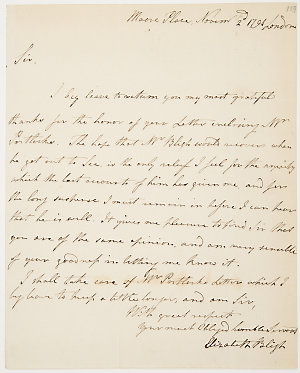 Moore Place, Novemr 2d 1791, London
Sir,
I beg leave to return you my most grateful
thanks for the honor of your Letter inclosing Mr
Portlocks. The hope that Mr Bligh wou'd recover when
he got out to Sea, is the only relief I feel for the anxiety
which the last account of him has given me, and for
the long suspense I must remain in before I can hear
that he is well. It gives me pleasure to find, Sir, that
you are of the same opinion, and am very sensible
of your goodness in letting me know it.
I shall take care of Mr Portlocks Letter which I
beg leave to keep a little longer, and am Sir,
With great respect
Your most Obliged humble Servant
Elizabeth Bligh